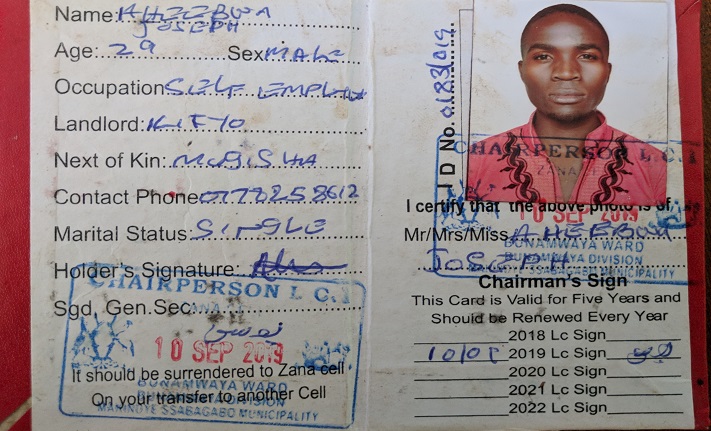 Name: AHEEBWA
JOSEPH
Age: 29 Sex MALE
Occupation SELF EMPLOYED
Landlord: KIFYO
Next of Kin: MUBISHA
Contact Phone 0778258612
Marital Status: SINGLE
Holder's Signature:
Sgd, Gen.Sec:
CHAIRPERSON L C.1
ZANA
10 SEP 2019
It should be surrendered to Zana cell
BUNAMWAYA WARD
On your transfer to another Cell
BUNAMWAYA DIVISION
MAKINDYE SSABAGABO MUNICIPALITY
I D No. 0183/019
CHAIRPERSON L C.1
ZANA
I certify that the above photo is of
10 SEP 2019
Mr/Mrs/Miss AHEEBWA
BUNAMWAYA WARD
JOSEPH
BUNAMWAYA DIVISION
SSABAGABO MUNICIPALITY
Chairman's Sign
This Card is Valid for Five Years and
Should be Renewed Every Year
2018 Lc Sign
10/09 2019 Lc Sign
2020 Lc Sign
2021 Lc Sign
2022 Lc Sign